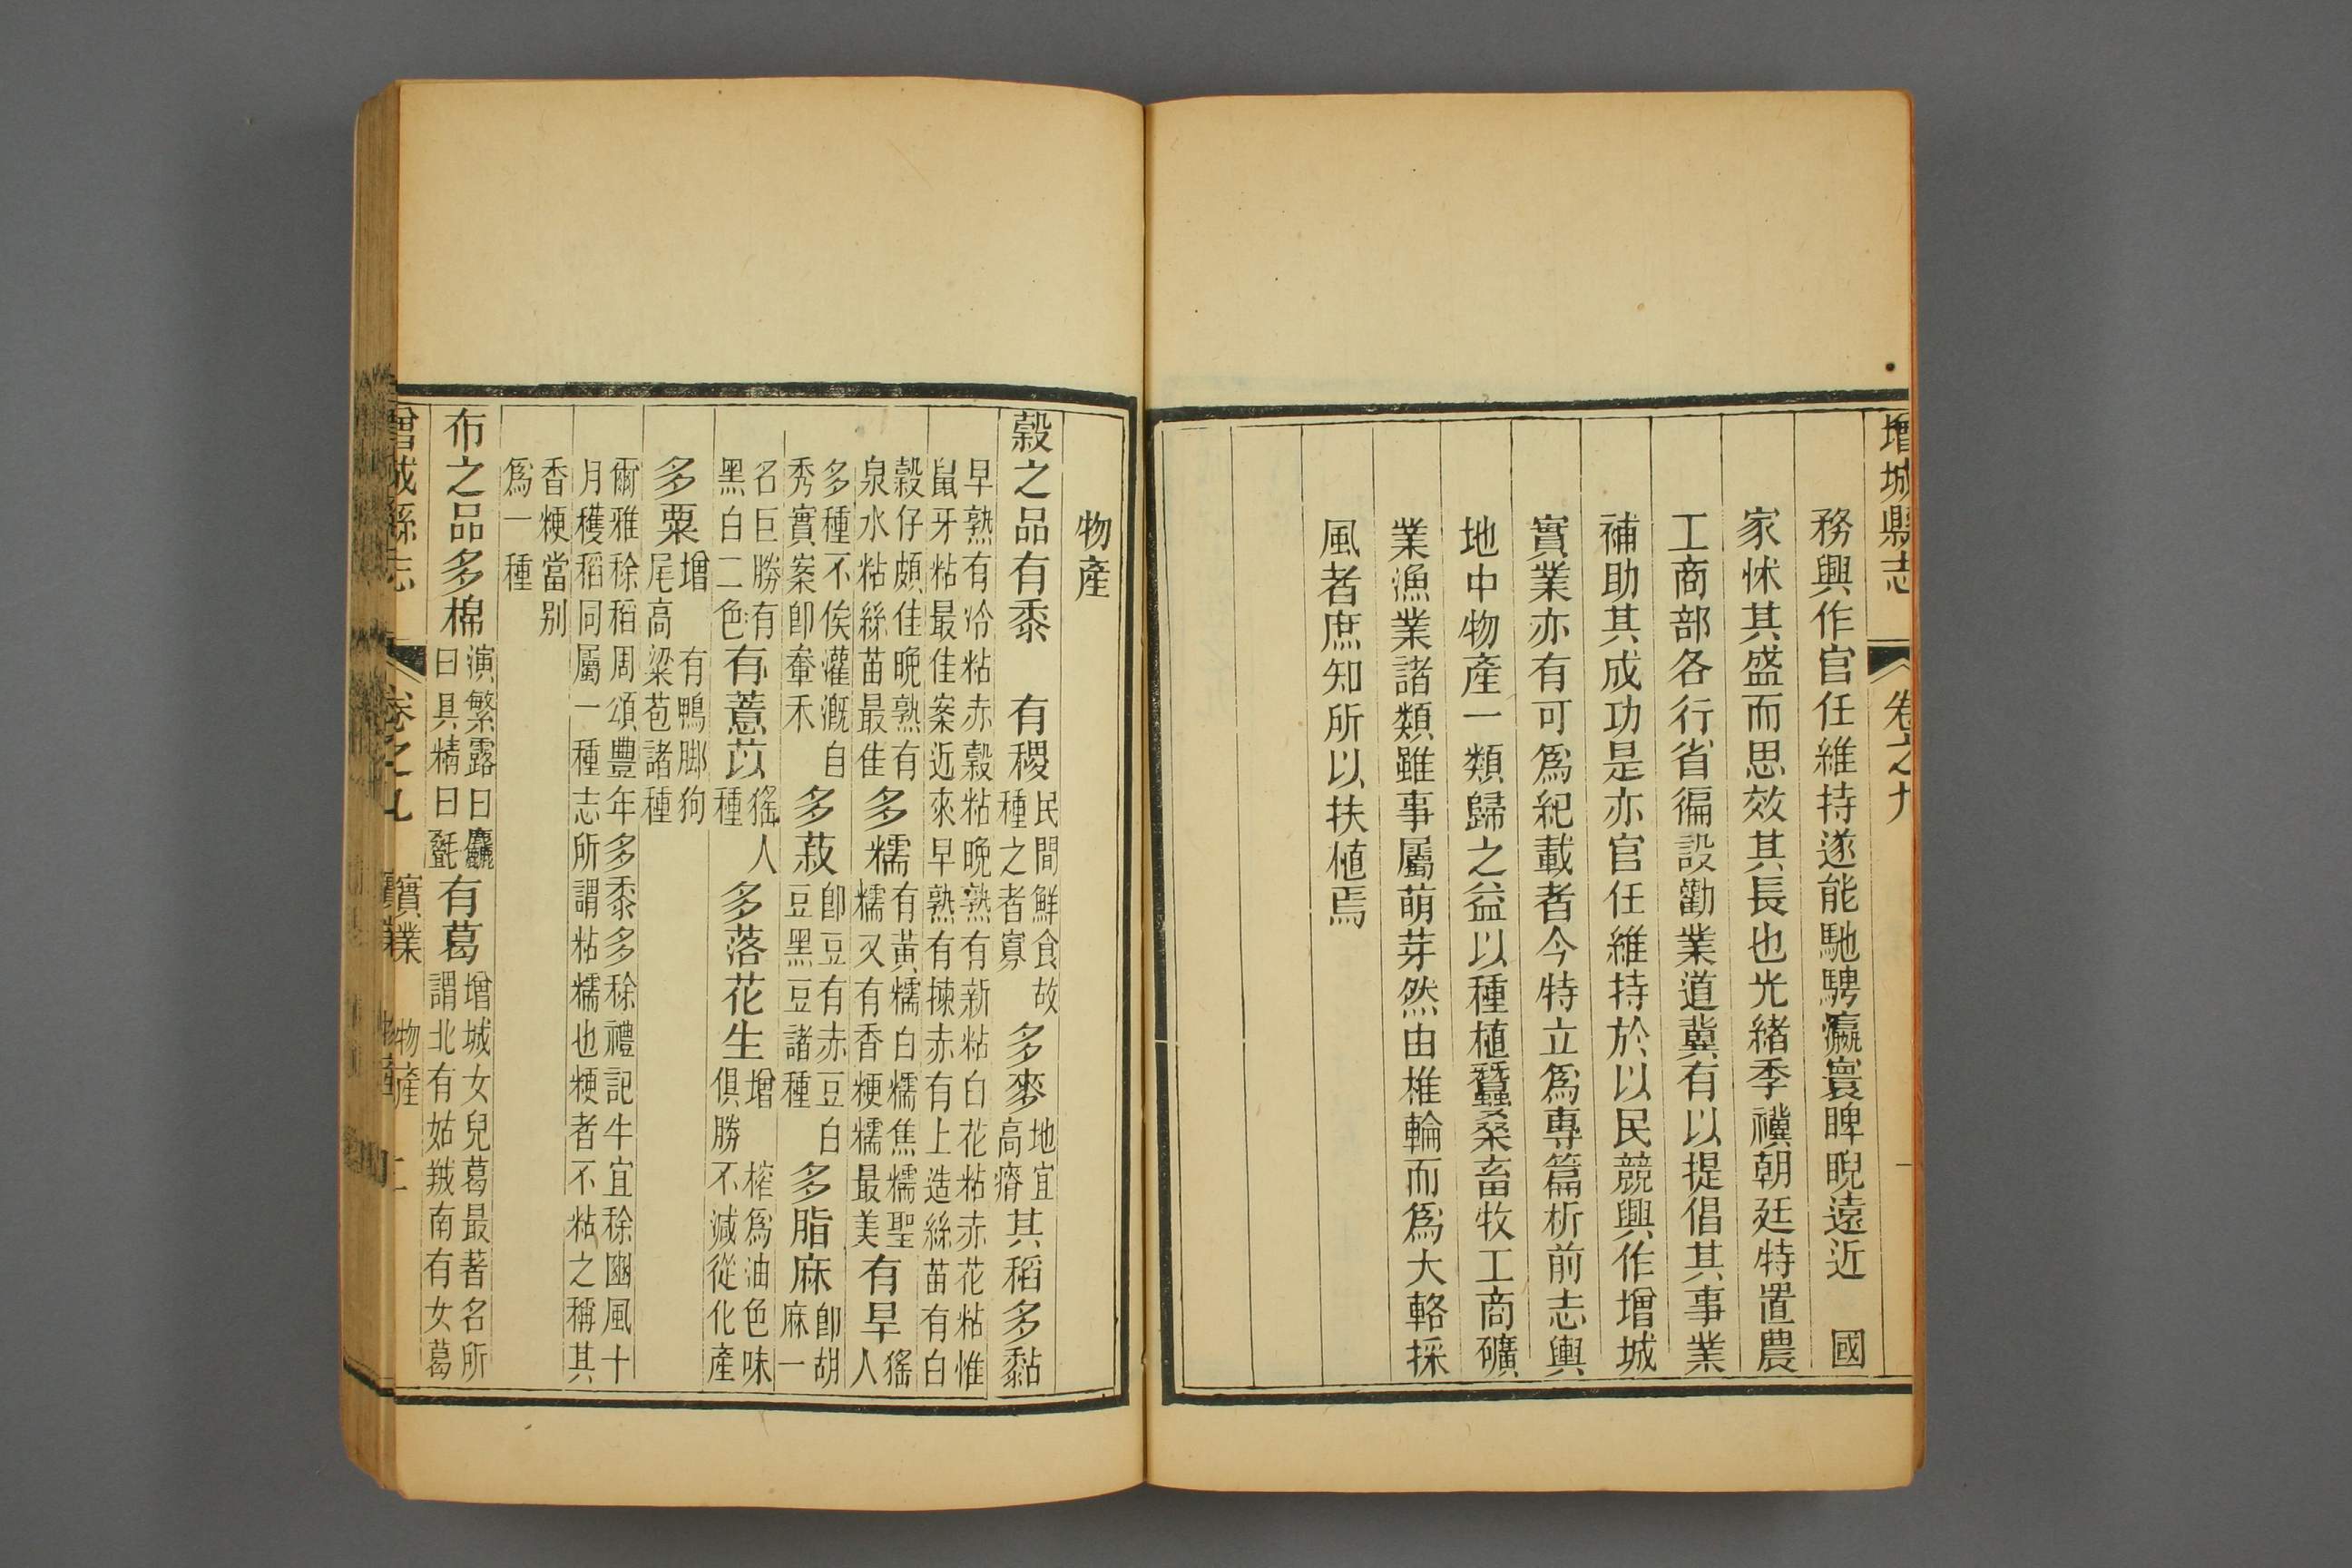 增城縣志
卷之九
一
務興作官任維持遂能馳騁瀛寰睥睨遠近　國
家怵其盛而思效其長也光緒季禩朝廷特置農
工商部各行省徧設勸業道冀有以提倡其事業
補助其成功是亦官任維持於以民競興作增城
實業亦有可爲紀載者今特立爲專篇析前志輿
地中物產一類歸之益以種植蠶桑畜牧工商礦
業漁業諸類雖事屬萌芽然由椎輪而爲大輅採
風者庶知所以扶植焉
物產
穀之品有黍　有稷民間鮮食故種之者寡多麥地宜高瘠其稻多黏
早熟有冷粘赤穀粘晚熟有新粘白花粘赤花粘惟
鼠牙粘最佳案近來早熟有揀赤有上造絲苗有白
穀仔頗佳晚熟有
泉水粘絲苗最佳多糯有黃糯白糯焦糯聖糯又有香粳糯最美有旱猺人
多種不俟灌溉自
秀實案卽䅣禾多菽卽豆有赤豆白豆黑豆諸種多脂麻卽胡麻一
名巨勝有
黑白二色有薏苡猺人種多落花生增榨爲油色味俱勝不減從化產
多粟增有鴨脚狗尾高粱苞諸種
爾雅稌稻周頌豐年多黍多稌禮記牛宜稌豳風十
月穫稻同屬一種志所謂粘糯也粳者不粘之稱其
香粳當别
爲一種
布之品多棉演繁露曰麤曰具精曰㲲有葛增城女兒葛最著名所謂北有姑羢南有女葛
增城縣志
卷之九
實業
物產
二